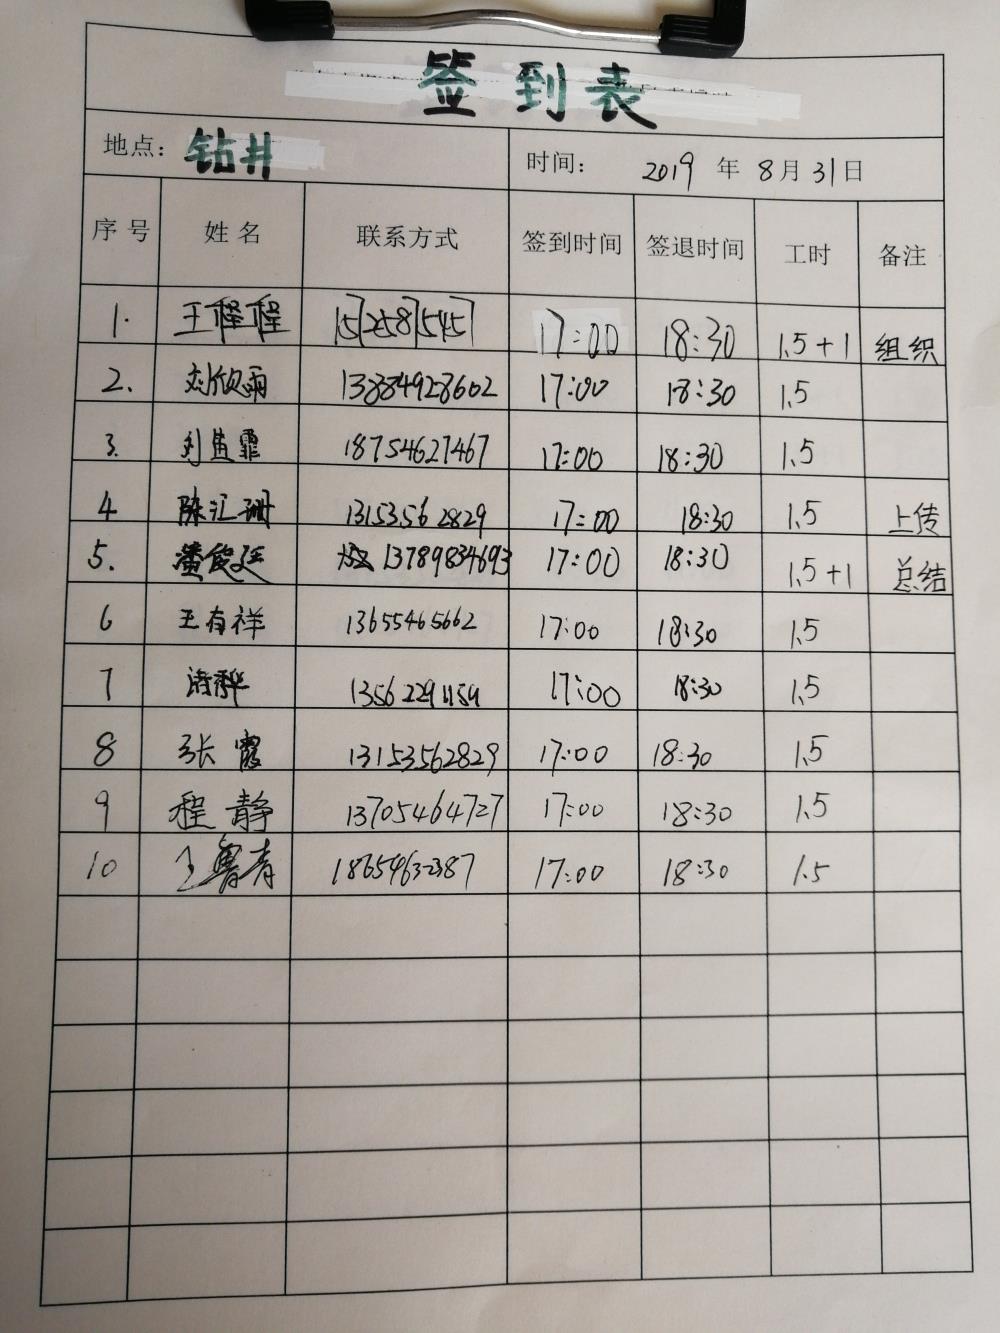 签到表
地点： 钻井 时间： 2019 年 8 月 31 日
序号 姓名 联系方式 签到时间 签退时间 工时 备注
1. 王程程 15725871545 17:00 18:30 1.5+1 组织
2. 刘欣雨 13884928602 17:00 18:30 1.5
3. 18754627467 17:00 18:30 1.5
4 陈汇珊 13153562829 17:00 18:30 1.5 上传
5. 黄俊廷 13789834693 17:00 18:30 1.5+1 总结
6 王有祥 13655465662 17:00 18:30 1.5
7 17:00 18:30 1.5
8 张霞 13153562829 17:00 18:30 1.5
9 程静 13705464727 17:00 18:30 1.5
10 王鲁青 18654632387 17:00 18:30 1.5